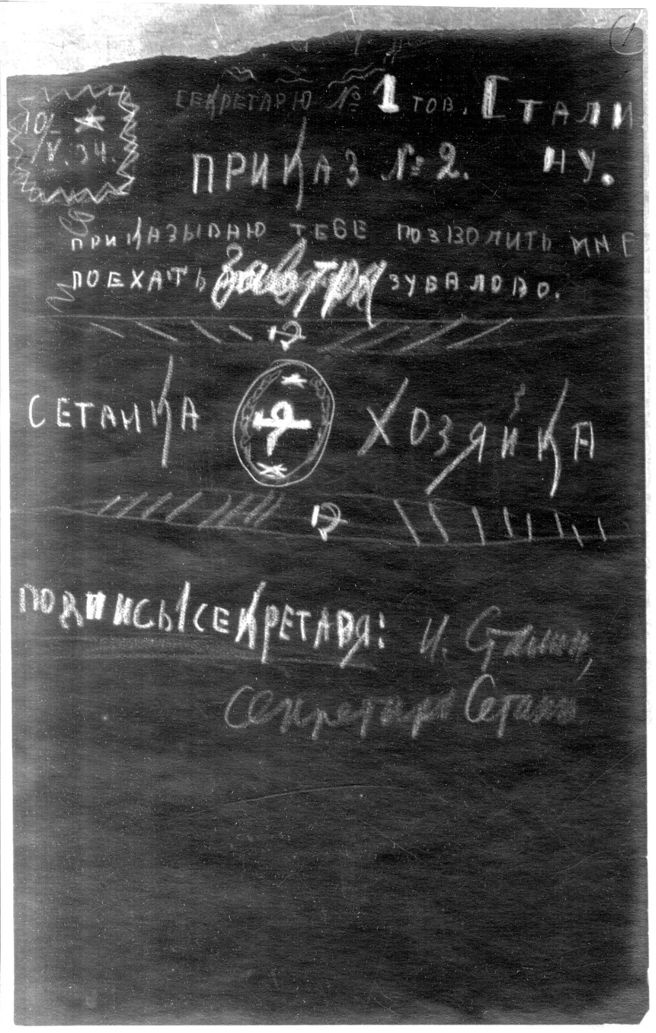 10/
IV. 34.
СЕКРЕТАРЮ № 1 ТОВ. СТАЛИ
НУ.
ПРИКАЗ № 2.
ПРИКАЗЫВАЮ ТЕБЕ ПОЗВОЛИТЬ МНЕ
ПОЕХАТЬ завтра ЗУБАЛОВО.
СЕТАНКА ХОЗЯЙКА
ПОДПИСЬ СЕКРЕТАРЯ: И. Сталин,
секретарь Сетанки